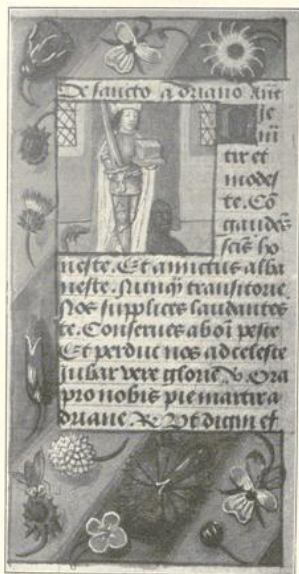 De sancto adriano Ant̄
ie
m̄
tir et
modes
te. Cō
gaudēs
scīs ho
neste. Et amictus alba
neste. Nunq̄ transitorie
Nos supplices laudantes
te. Conserues ab oī peste
Et perduc nos ad celeste
iubar vere glorie V. Ora
pro nobis pie martir a
driane R. Vt digni ef